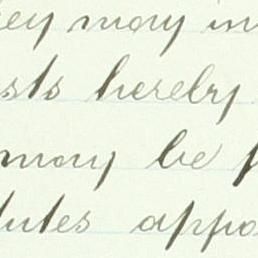 ey may in
sts hereby
may be
utes appo